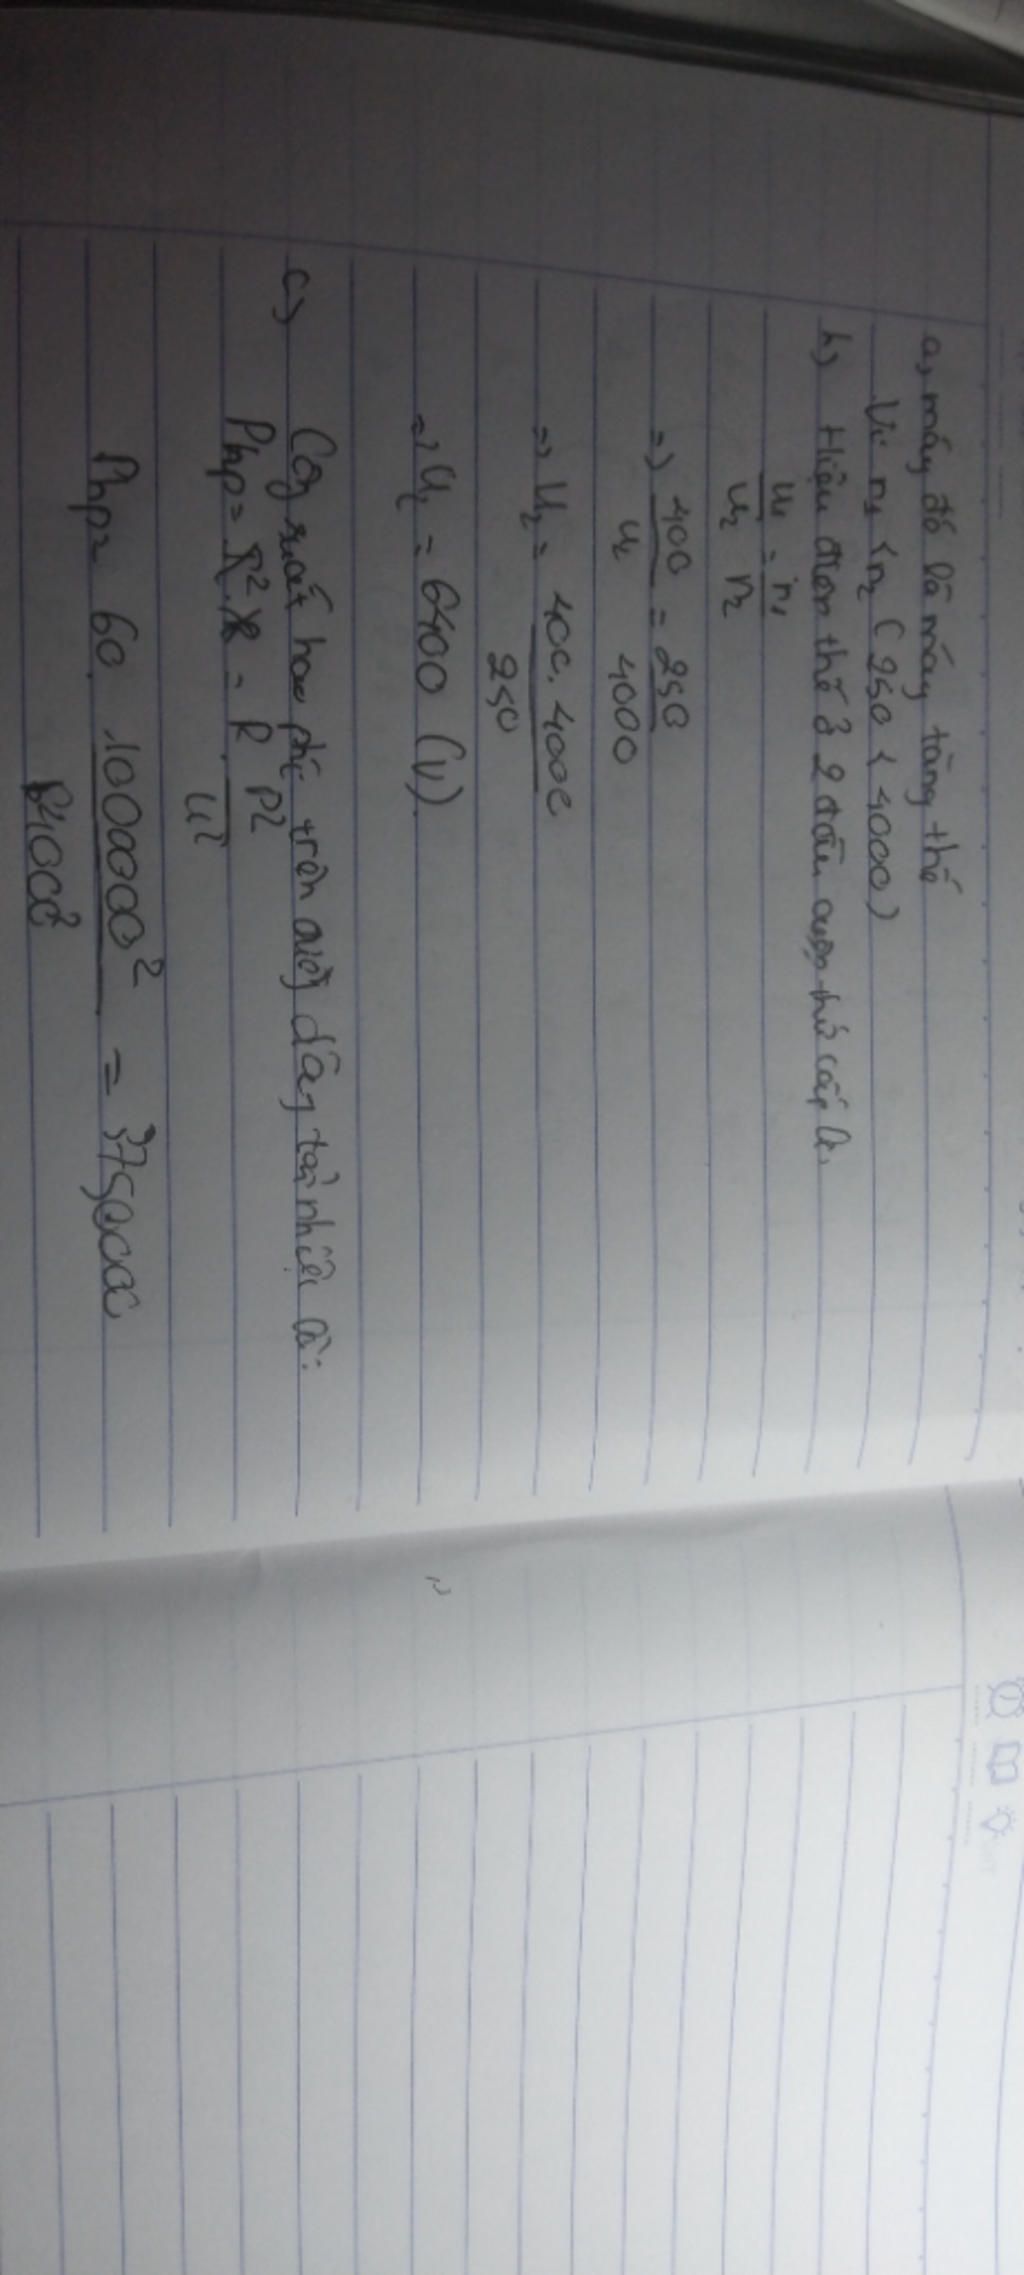 a, máy đó là máy tăng thế
Vì n₁ < n₂ ( 250 < 4000 )
b, Hiệu điện thế ở 2 đầu cuộn thứ cấp là,
U₁/U₂ = n₁/n₂
=> 400/U₂ = 250/4000
=> U₂ = 400. 4000/250
=> U₂ = 6400 (V)
c, Công suất hao phí trên dây tải nhiệt là:
Php = I². R = R. P²/U²
Php = 60. 100000²/ = 375000